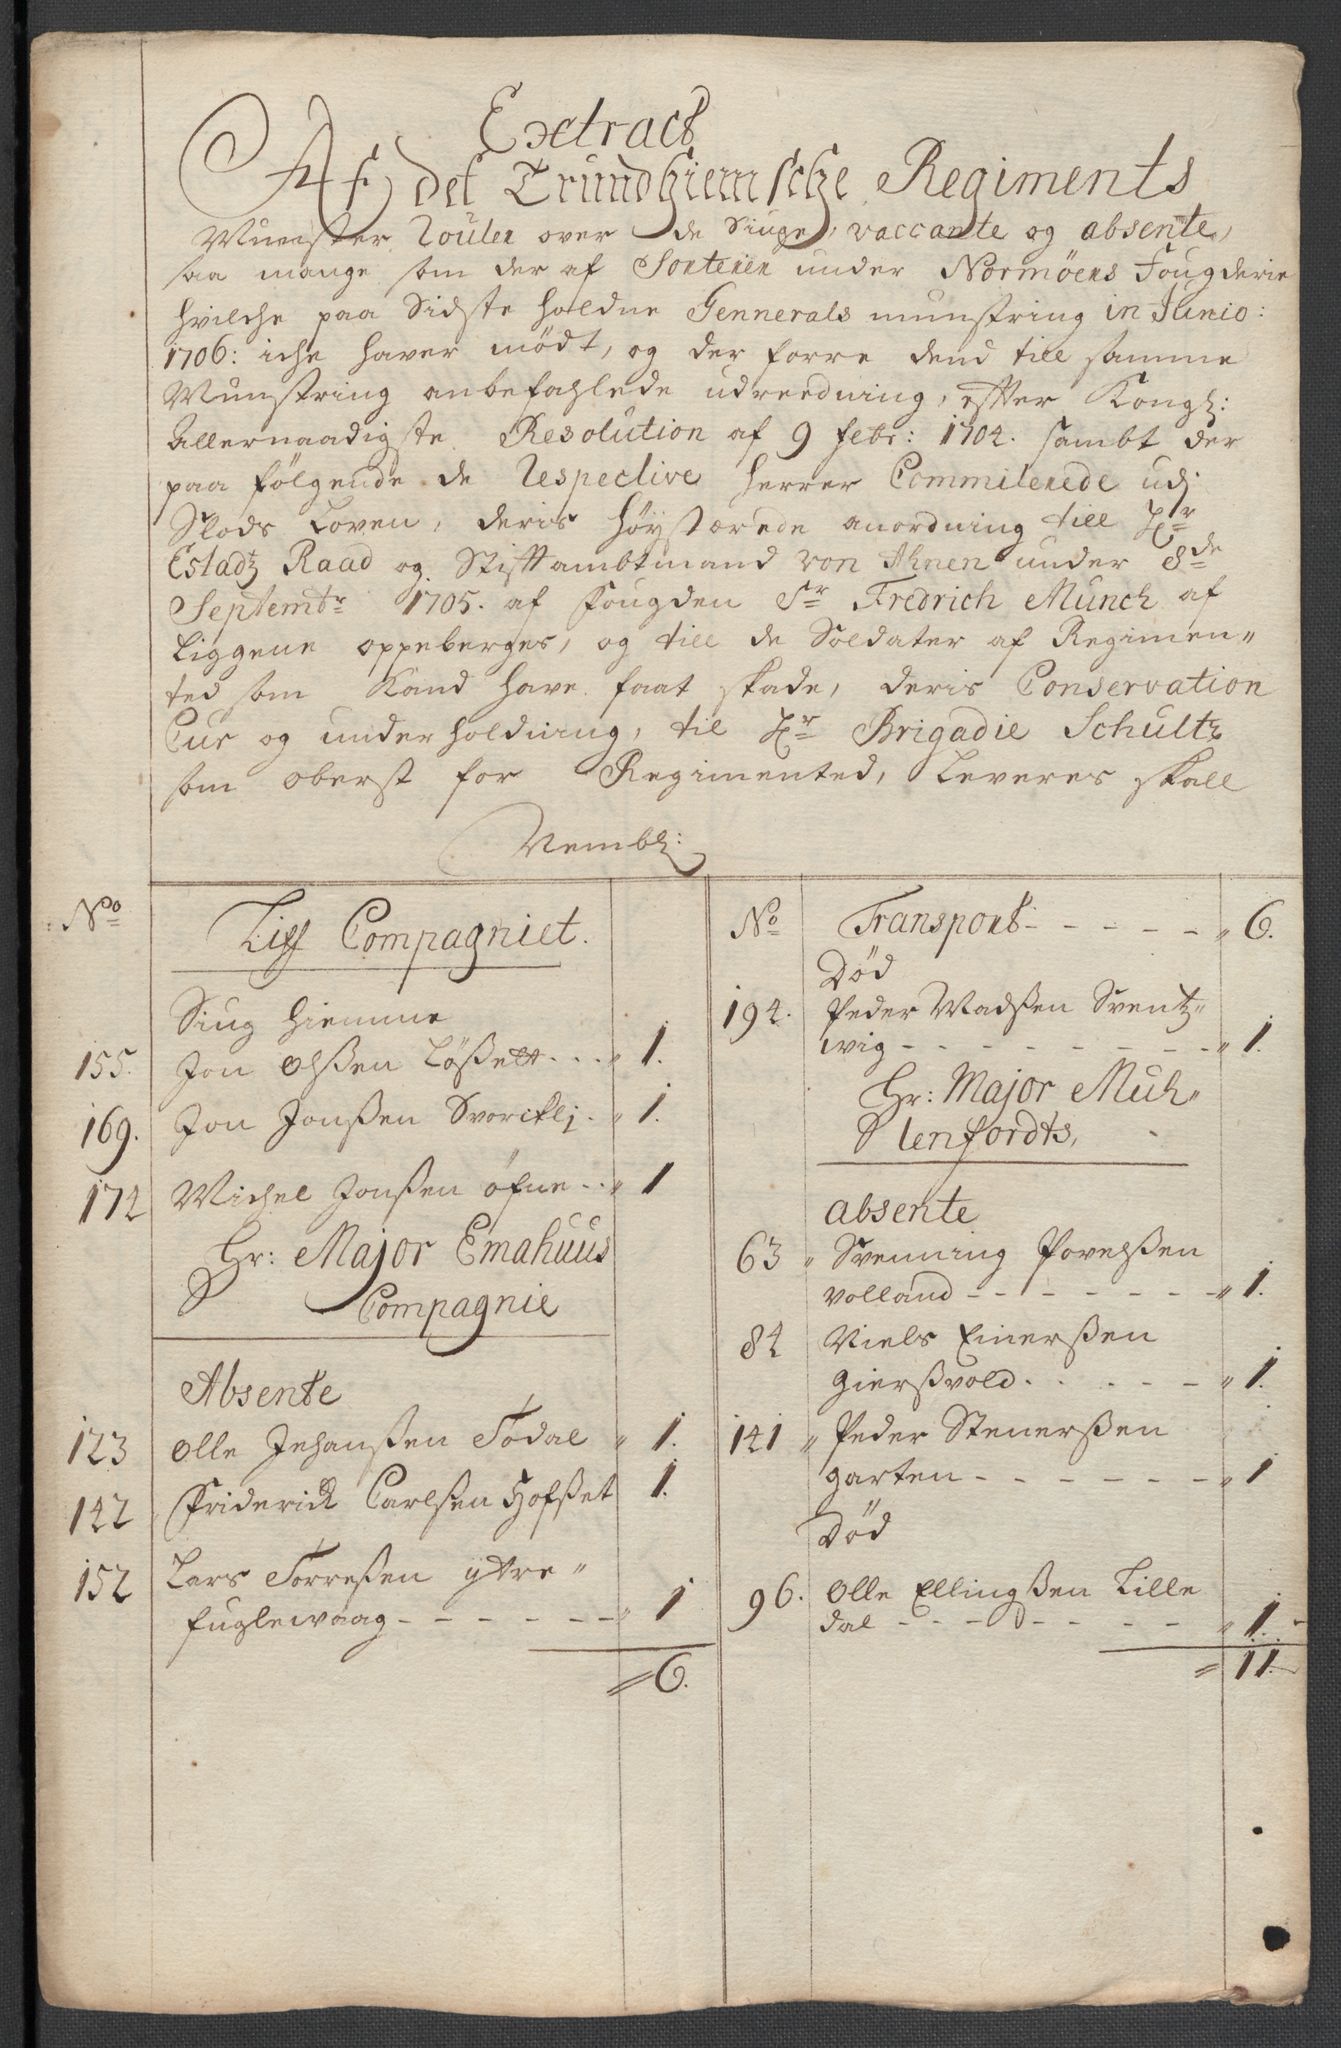 Extract
Af det Trundhiemsche Regiments
Munster Roulen over de Siuge, vaccante og absente,
saa mange som der af Sorteren under Normöens Fougderie
hvilche paa Sidste holdne Gennerals munstring in Junio:
1706: iche haver mödt, og der forre dend till samme
Munstring anbefahlede udreedning, effter Kongl:
Allernaadigste Resolution af 9 febr: 1704. sambt der
paa fölgende de Respective Herrer Committerede udj
Slods Loven, deris höystærede anordning till Hr
Estadtz Raad og Stifftambtmand von Ahnen under 8de
Septembr 1705. af Fougden Sr Fredrich Munch af
Liggene oppeberges, og till de Soldater af Regimen-
ted som Kand have faat skade, deris Conservation
Cur og underholdning, til Hr Brigadie Schultz
som oberst for Regimented, Leveres skall
Nembl:
No
Liff Compagniet.
Siug hiemme
155. Jon Olßen Lößett . . . " 1.
169. Jon Jonßen Svorchlj . " 1.
174 Michel Jonßen öfne . . " 1
Hr: Major Emahuus
Compagnie
Absente
123 Olle Jehanßen Todal " 1.
142 Friderich Carlßen Hofset 1.
152 Lars Torreßen yttre "
fuglewaag - - - - - - " 1
= 6.
No Transport - - - - - " 6.
Död
194. Peder Madßen Sventz-
wig - - - - - - - - - " 1.
Hr: Major Muh-
lenfordts,
absente
63 " Svenning Povelßen
volland - - - - - - - " 1.
84 Niels Einerßen
gierßvold . . . - - - " 1.
141 " Peder Stenerßen
garten - - - - - - - " 1
Död
96. Olle Ellingßen Lille
dal - - - - - - - - " 1.
= 11.